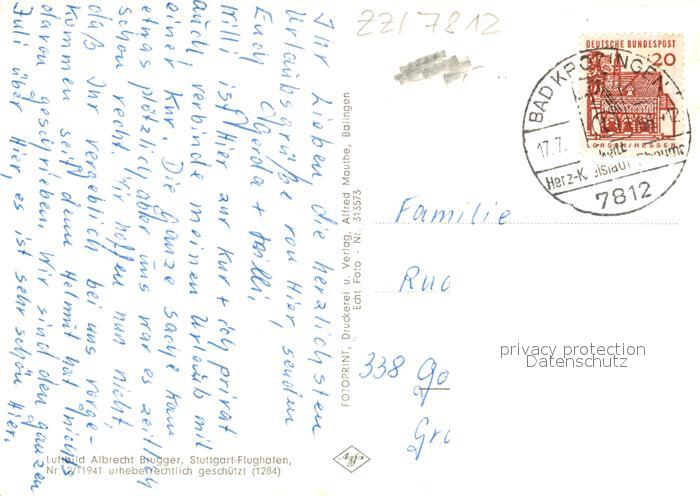 Ihr Lieben die herzlichsten
Urlaubsgrüße von Hier, senden
Euch Gerda + Willi,
Willi ist Hier zur Kur + ich privat
auch, verbinde meinen Urlaub mit
einer Kur. Die ganze Sache kam
etwas plötzlich, aber uns war es zeitlich
schon recht. Wir hoffen nun nicht,
daß Ihr vergeblich bei uns vorge-
kommen seit, denn Helmut hat nichts
davon geschrieben. Wir sind den ganzen
Juli über Hier, es ist sehr schön Hier.
Luftbild Albrecht Brugger, Stuttgart-Flughafen,
Nr. 2/11941 urheberrechtlich geschützt (1284)
FOTOPRINT, Druckerei u. Verlag, Alfred Mauthe, Balingen
Echt Foto - Nr. 313573
Agfa
ZZ1 7812
DEUTSCHE BUNDESPOST
20
LORSCH/HESSEN
BAD KROZINGEN
17.7.
Herz-K
7812
Familie
Rud
338 Go
Gra
privacy protection
Datenschutz